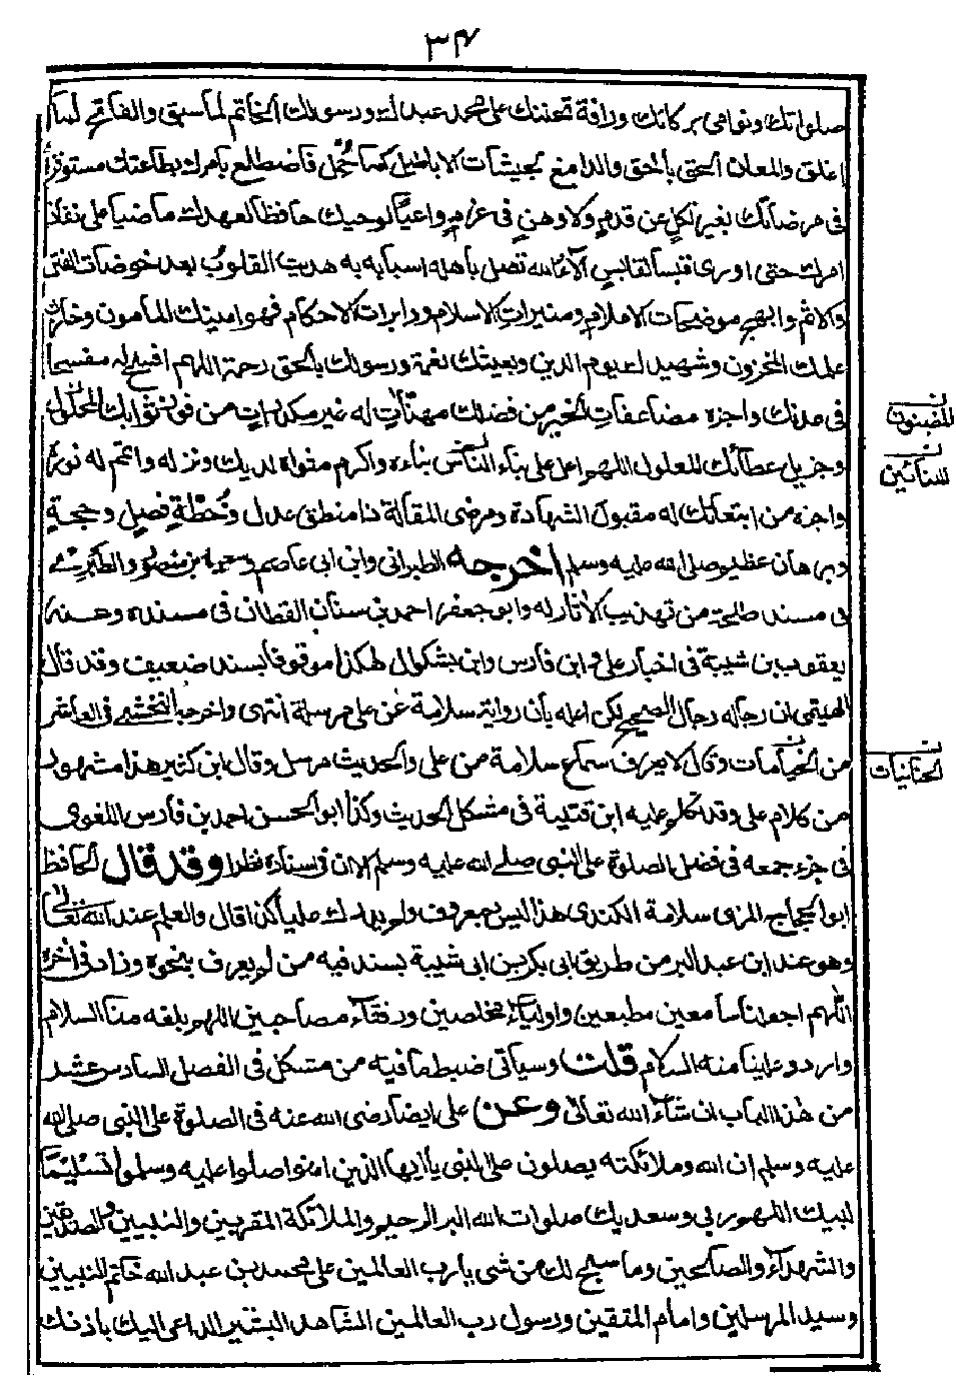 ٣٤
صلواتك ونوامي بركاتك ورافة تحننك على محمد عبدك ورسولك الخاتم لما سبق والفاتح لما
اغلق والمعلن الحق بالحق والدامغ لجيشات الاباطيل كما حُمّل فاضطلع بامرك بطاعتك مستوفزا
في مرضاتك بغير نكل عن قدم ولا وهن في عزم واعيا لوحيك حافظا لعهدك ماضيا على نفاذ
امرك حتى اورى قبسا لقابس الآء الله تصل باهله اسبابه به هديت القلوب بعد خوضات الفتن
والاثم وابهج موضحات الاعلام ومنيرات الاسلام ودايرات الاحكام فهو امينك المأمون وخازن
علمك المخزون وشهيدك يوم الدين وبعيثك نعمة ورسولك بالحق رحمة اللهم افسح له مفسحا
في عدنك واجزه مضاعفات الخير من فضلك مهنّاتٍ له غير مكدرات من فوز ثوابك المحلول
وجزيل عطائك المعلول اللهم اعل على بناء الناس بناءه واكرم مثواه لديك ونزله واتمم له نوره
واجزه من ابتعاثك له مقبول الشهادة ومرضى المقالة ذا منطق عدل وخُطّةٍ فصل وحجةٍ
وبرهان عظيم صلى الله عليه وسلم اخرجه الطبراني وابن ابي عاصم وسعيد بن منصور والطبري
في مسند طلحة من تهذيب الآثار له وابو جعفر احمد بن سنان القطان في مسنده وعنه
يعقوب بن شيبة في اخبار علي وابن فارس وابن بشكوال هكذا موقوفا بسند ضعيف وقد قال
الهيثمي ان رجاله رجال الصحيح لكن اعله بأن رواية سلامة عن علي مرسلة انتهى واخرجه النخشبي في العاشر
من الحنائيات وقال لا يعرف سماع سلامة من علي والحديث مرسل وقال ابن كثير هذا مشهور
من كلام علي وقد تكلم عليه ابن قتيبة في مشكل الحديث وكذا ابو الحسن احمد بن فارس اللغوي
في جزء جمعه في فضل الصلوة على النبي صلى الله عليه وسلم الا ان في اسناده نظرا وقد قال الحافظ
ابو الحجاج المزي سلامة الكندي هذا ليس بمعروف ولم يدرك عليا كذا قال والعلم عند الله تعالى
وهو عند ابن عبد البر من طريق ابي بكر بن ابي شيبة بسند فيه من لم يعرف بنحوه وزاد في اخره
اللهم اجعلنا سامعين مطيعين واولياء مخلصين ورفقاء مصاحبين اللهم بلغه منا السلام
واردد علينا منه السلام قلت وسيأتي ضبط ما فيه من مشكل في الفصل السادس عشر
من هذا الباب ان شاء الله تعالى وعن علي ايضا رضي الله عنه في الصلوة على النبي صلى الله
عليه وسلم ان الله وملائكته يصلون على النبي يا ايها الذين امنوا صلوا عليه وسلموا تسليما
لبيك اللهم ربي وسعديك صلوات الله البر الرحيم والملائكة المقربين والنبيين والصديقين
والشهداء والصالحين وما سبح لك من شي يا رب العالمين على محمد بن عبد الله خاتم النبيين
وسيد المرسلين وامام المتقين ورسول رب العالمين الشاهد البشير الداعي اليك باذنك
المضنون
البنائين
الحنائيات